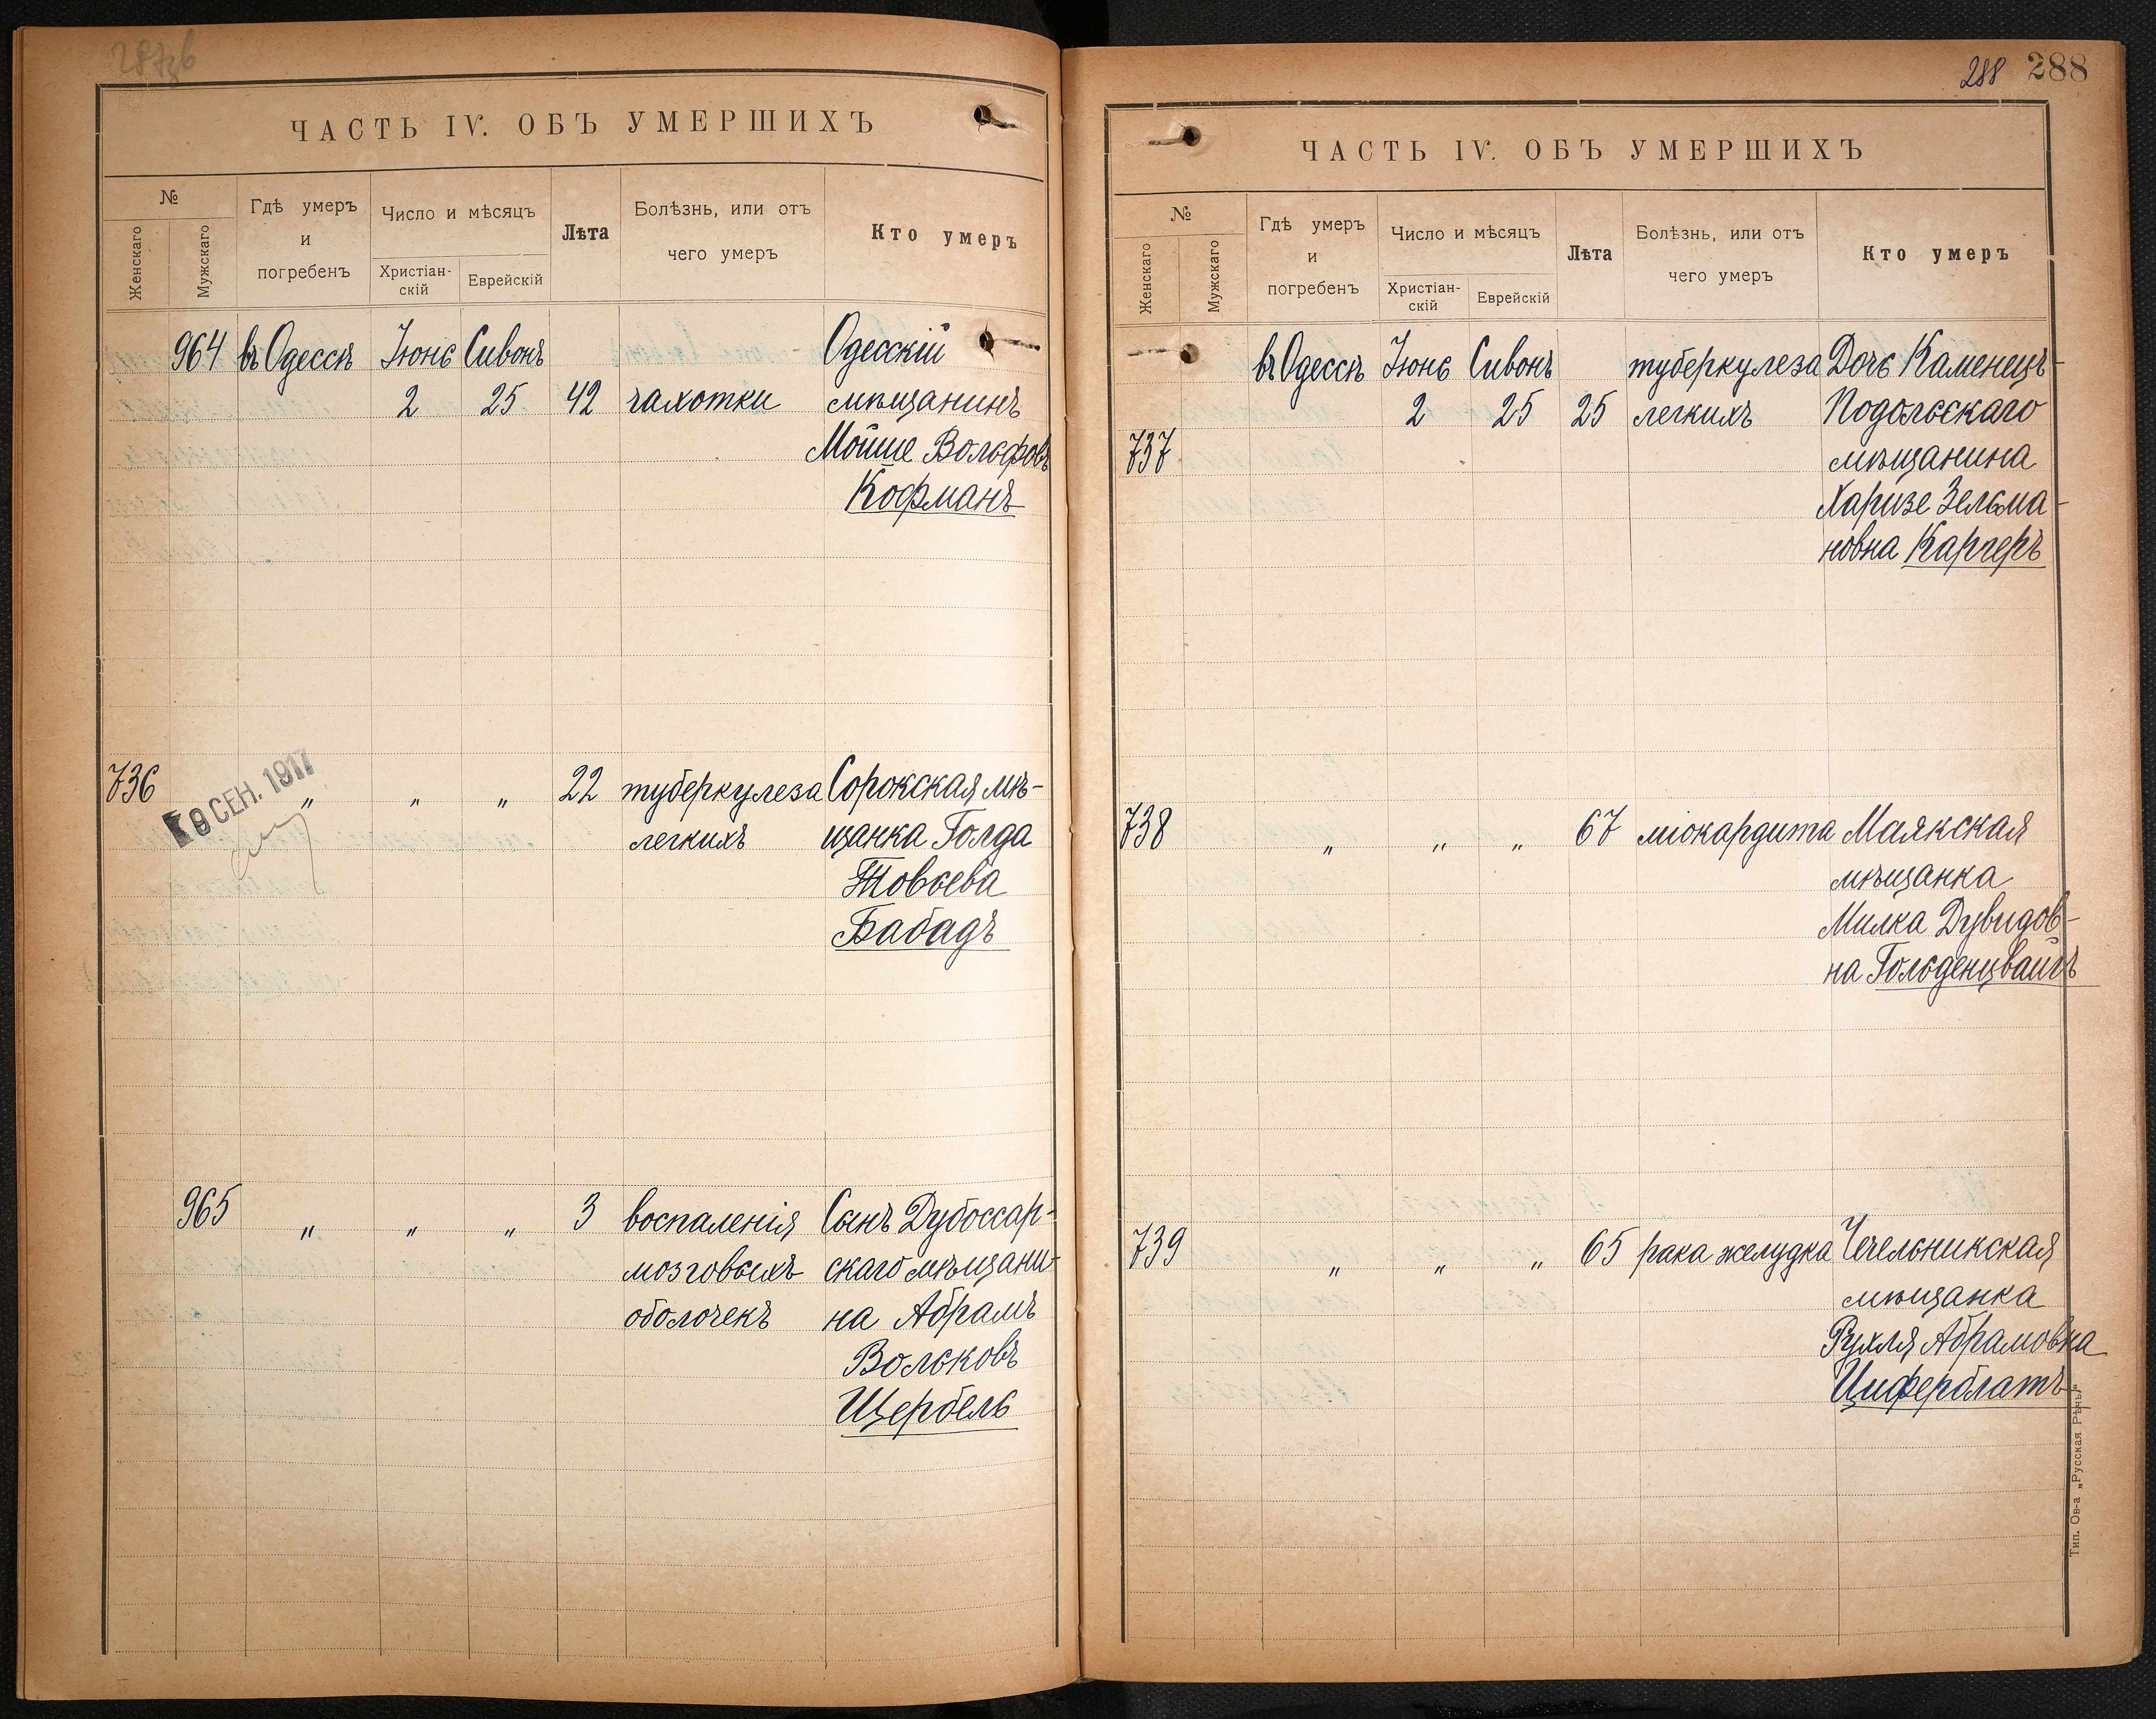 ЧАСТЬ IV. ОБЪ УМЕРШИХЪ
№
Женскаго
Мужскаго
Гдѣ умеръ
и
погребенъ
Число и мѣсяцъ
Христіан-
скій
Еврейскій
Лѣта
Болѣзнь, или отъ
чего умеръ
Кто умеръ
964 въ Одессѣ Іюнь Сивонъ Одесскій
2 25 42 чахотки мѣщанинъ
Мойше Вольфовъ
Кофманъ
736 " " " 22 туберкулеза Сорокская мѣ-
легкихъ щанка Голда
Товьева
Бабадъ
9 СЕН. 1917
965 " " " 3 воспаленія Сынъ Дубоссар-
мозговыхъ скаго мѣщани-
оболочекъ на Абрамъ
Вольковъ
Щербель
288 288
ЧАСТЬ IV. ОБЪ УМЕРШИХЪ
№
Женскаго
Мужскаго
Гдѣ умеръ
и
погребенъ
Число и мѣсяцъ
Христіан-
скій
Еврейскій
Лѣта
Болѣзнь, или отъ
чего умеръ
Кто умеръ
въ Одессѣ Іюнь Сивонъ туберкулеза Дочь Каменецъ-
2 25 25 легкихъ Подольскаго
737 мѣщанина
Харизе Зельма-
новна Каргеръ
738 " " " 67 міокардита Маякская
мѣщанка
Милка Дувидов-
на Гольденцвайгъ
739 " " " 65 рака желудка Чечельникская
мѣщанка
Рухля Абрамовна
Циферблатъ
Тип. Ов-а „Русская Рѣчь“